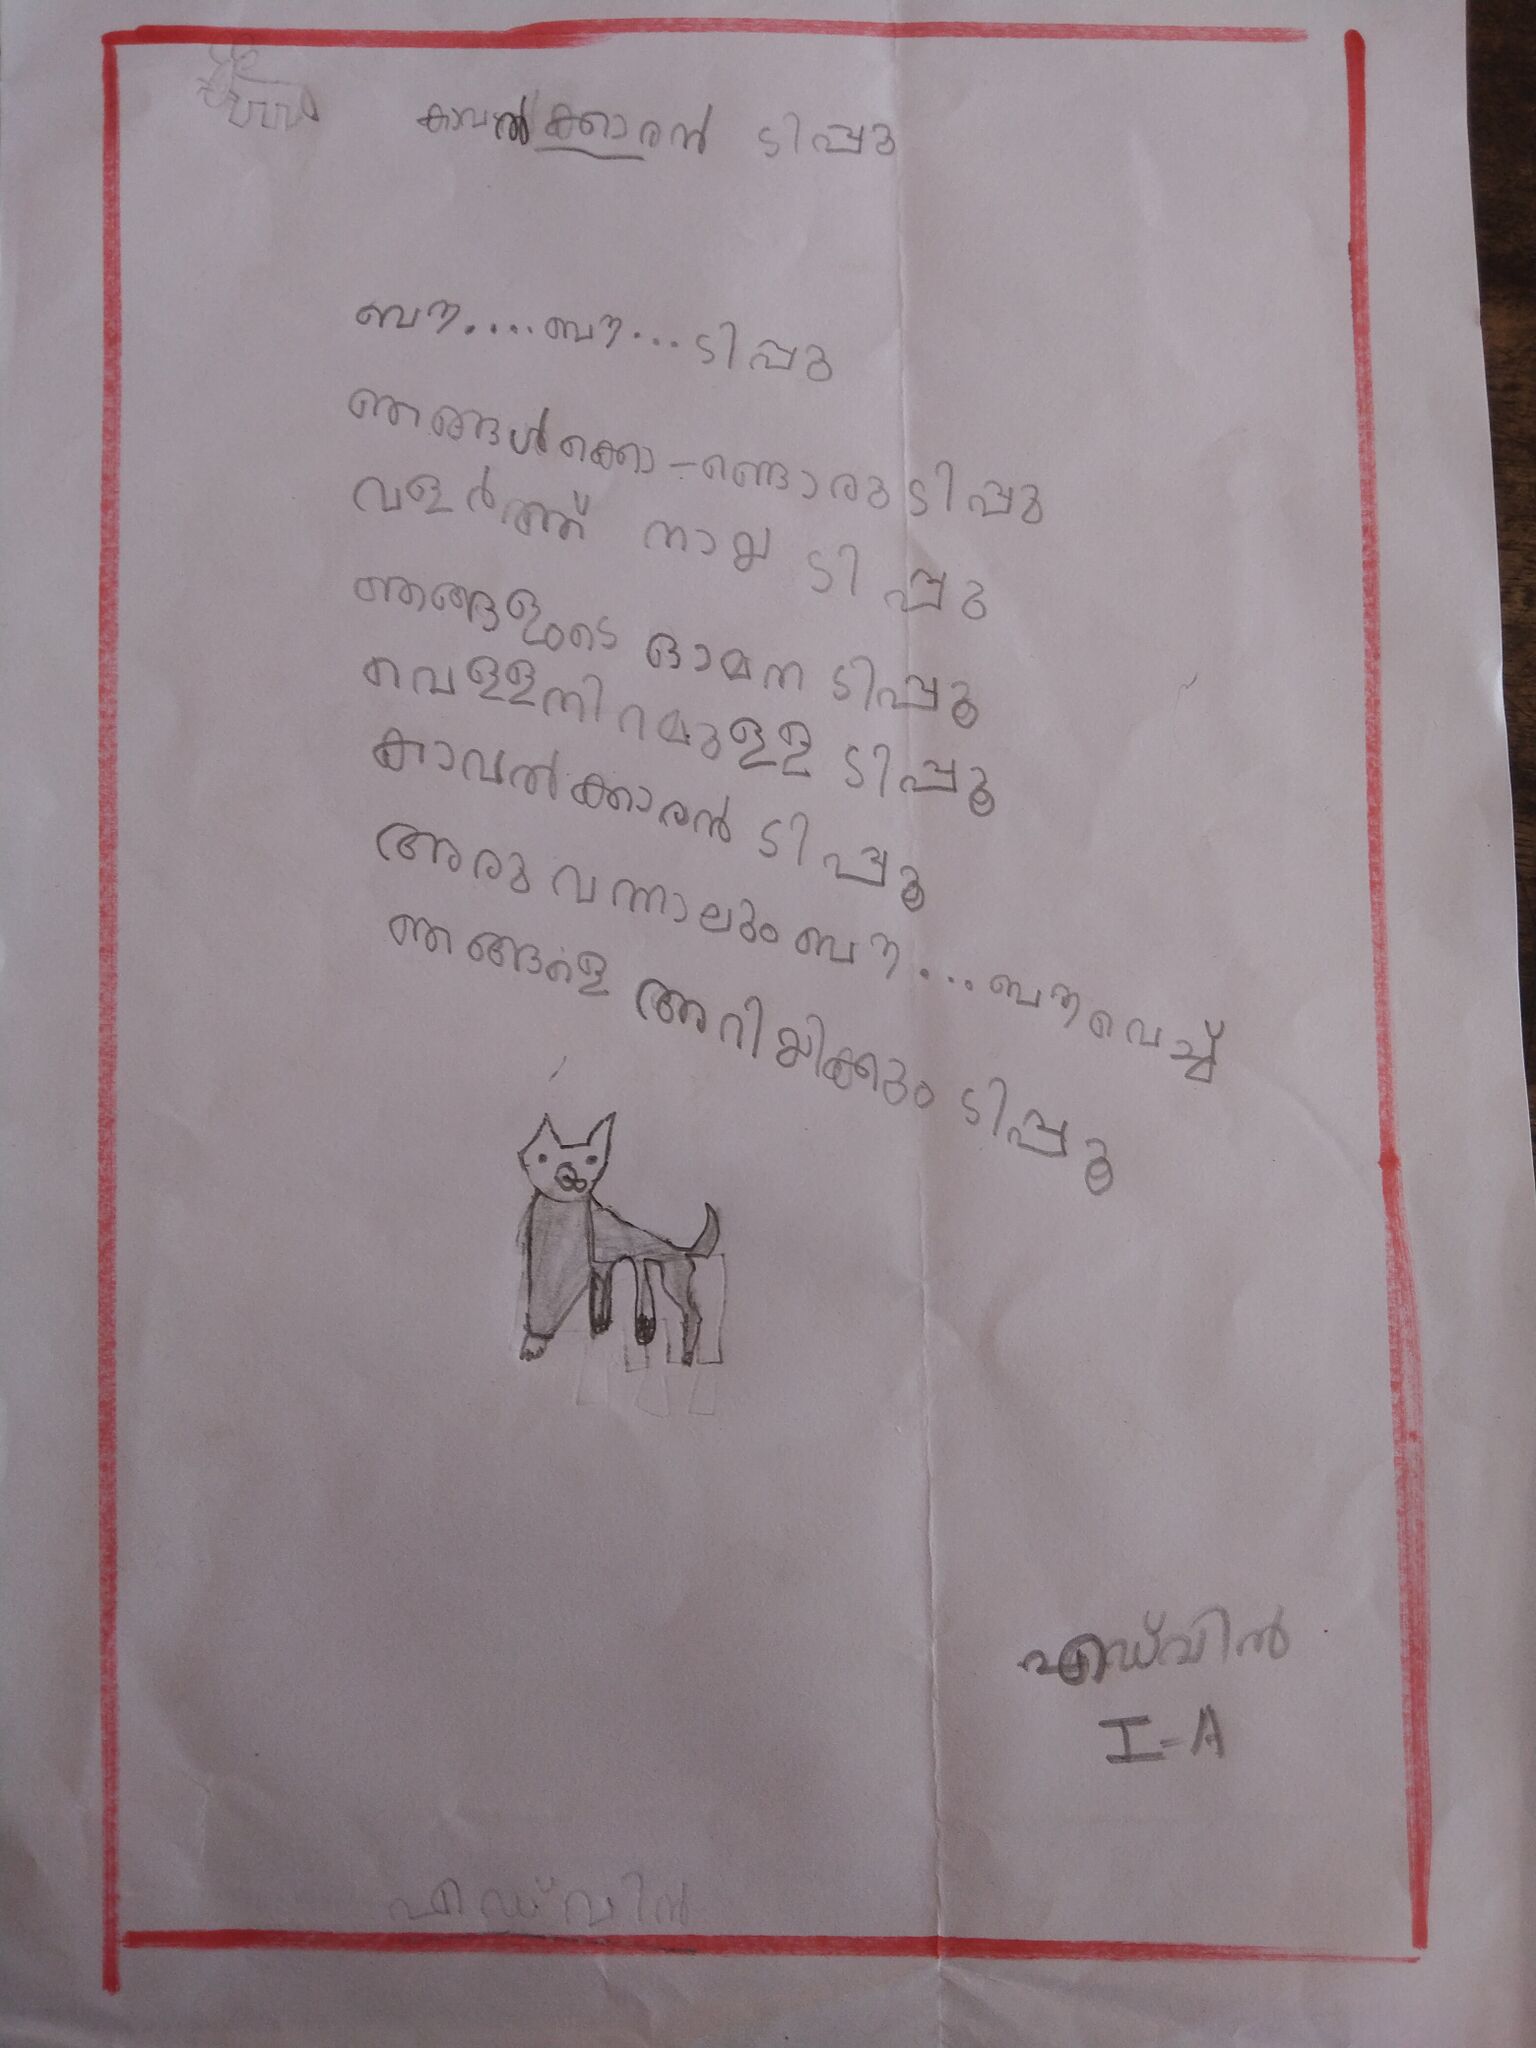 കാവൽക്കാരൻ ടിപ്പു
ബൗ....ബൗ...ടിപ്പു
ഞങ്ങൾക്കൊ-ണ്ടൊരു ടിപ്പു
വളർത്ത് നായ ടിപ്പു
ഞങ്ങളുടെ ഓമന ടിപ്പു
വെള്ളനിറമുള്ള ടിപ്പു
കാവൽക്കാരൻ ടിപ്പു
ആരു വന്നാലും ബൗ...ബൗവെച്ച്
ഞങ്ങളെ അറിയിക്കും ടിപ്പു
എഡ്വിൻ
I-A
എഡ്വിൻ